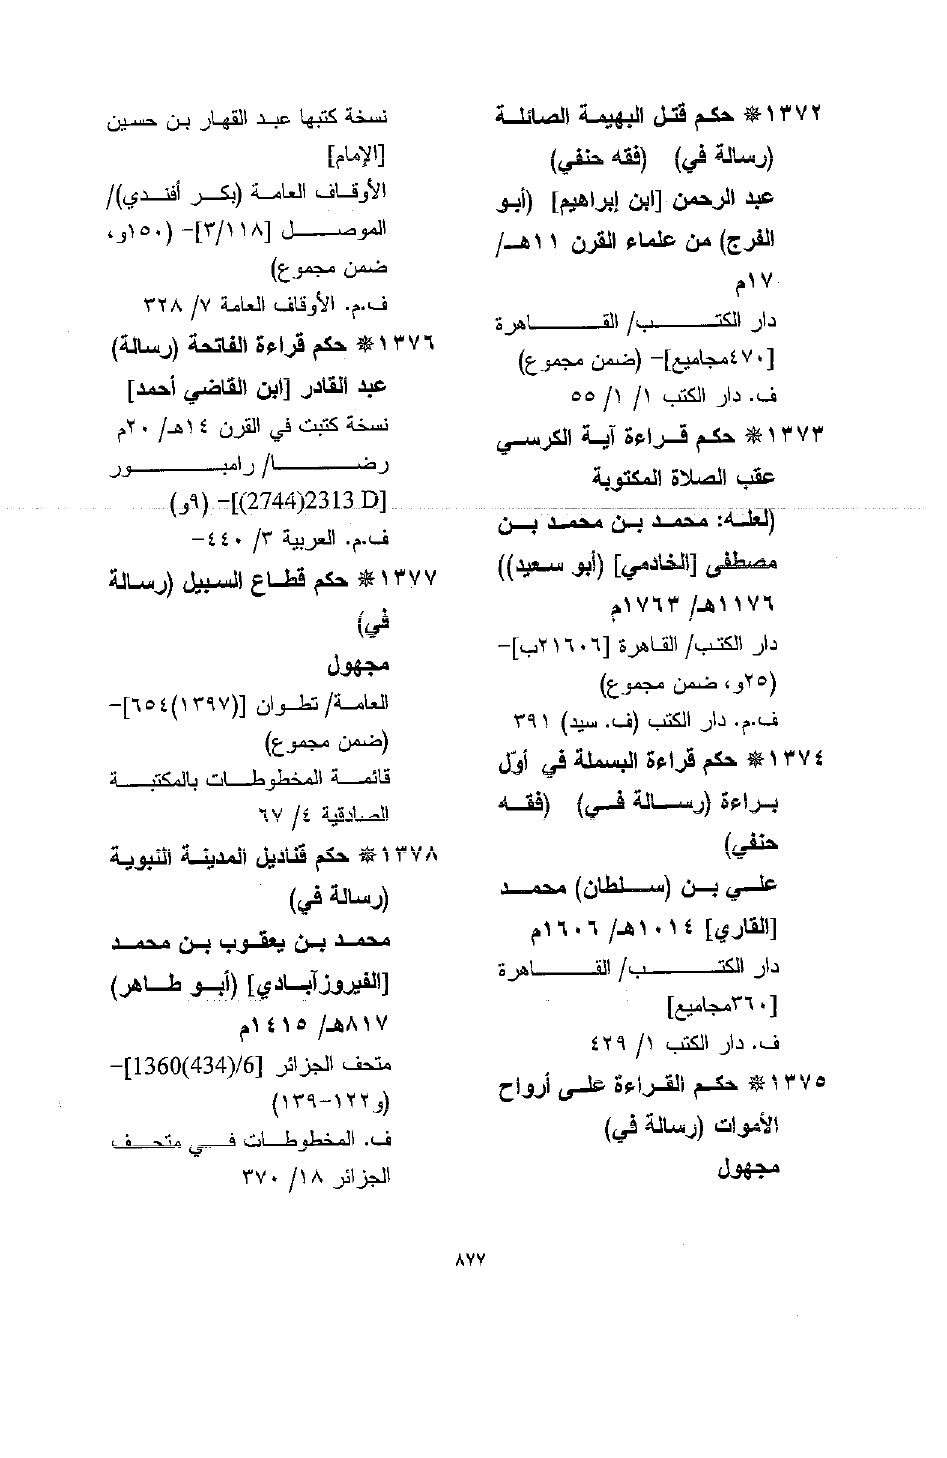 ١٣٧٢* حكم قتل البهيمة الصائلة
(رسالة في) (فقه حنفي)
عبد الرحمن [ابن إبراهيم] (أبو
الفرج) من علماء القرن ١١هـ/
١٧م
دار الكتب/ القاهرة
[٤٧٠مجاميع]- (ضمن مجموع)
ف. دار الكتب ١/ ١/ ٥٥
١٣٧٣* حكم قراءة آية الكرسي
عقب الصلاة المكتوبة
(لعله: محمد بن محمد بن
مصطفى [الخادمي] (أبو سعيد))
١١٧٦هـ/ ١٧٦٣م
دار الكتب/ القاهرة [٢١٦٠٦ب]-
(٢٥و، ضمن مجموع)
ف.م. دار الكتب (ف. سيد) ٣٩١
١٣٧٤* حكم قراءة البسملة في أوّل
براءة (رسالة في) (فقه
حنفي)
علي بن (سلطان) محمد
[القاري] ١٠١٤هـ/ ١٦٠٦م
دار الكتب/ القاهرة
[٣٦٠مجاميع]
ف. دار الكتب ١/ ٤٢٩
١٣٧٥* حكم القراءة على أرواح
الأموات (رسالة في)
مجهول
نسخة كتبها عبد القهار بن حسين
[الإمام]
الأوقاف العامة (بكر أفندي)/
الموصل [٣/١١٨]- (١٥٠و،
ضمن مجموع)
ف.م. الأوقاف العامة ٧/ ٣٢٨
١٣٧٦* حكم قراءة الفاتحة (رسالة)
عبد القادر [ابن القاضي أحمد]
نسخة كتبت في القرن ١٤هـ/ ٢٠م
رضا/ رامبور
[2313 D(2744)]- (٩و)
ف.م. العربية ٣/ ٤٤٠-
١٣٧٧* حكم قطاع السبيل (رسالة
في)
مجهول
العامة/ تطوان [(١٣٩٧)٦٥٤]-
(ضمن مجموع)
قائمة المخطوطات بالمكتبة
الصادقية ٤/ ٦٧
١٣٧٨* حكم قناديل المدينة النبوية
(رسالة في)
محمد بن يعقوب بن محمد
[الفيروزآبادي] (أبو طاهر)
٨١٧هـ/ ١٤١٥م
متحف الجزائر [1360(434)/6]-
(و١٢٢-١٣٩)
ف. المخطوطات في متحف
الجزائر ١٨/ ٣٧٠
٨٧٧